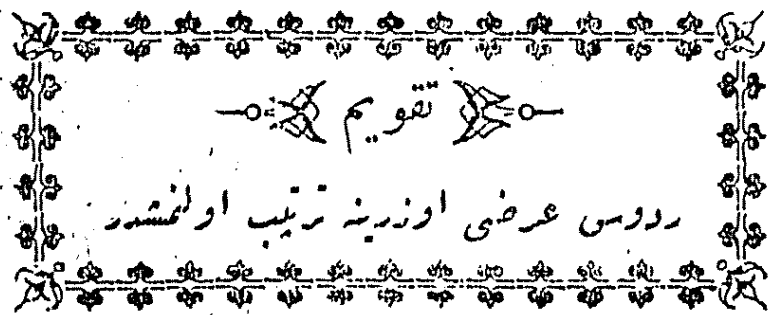 تقويم
ردوس عرضى اوزرينه ترتيب اولنمشدر